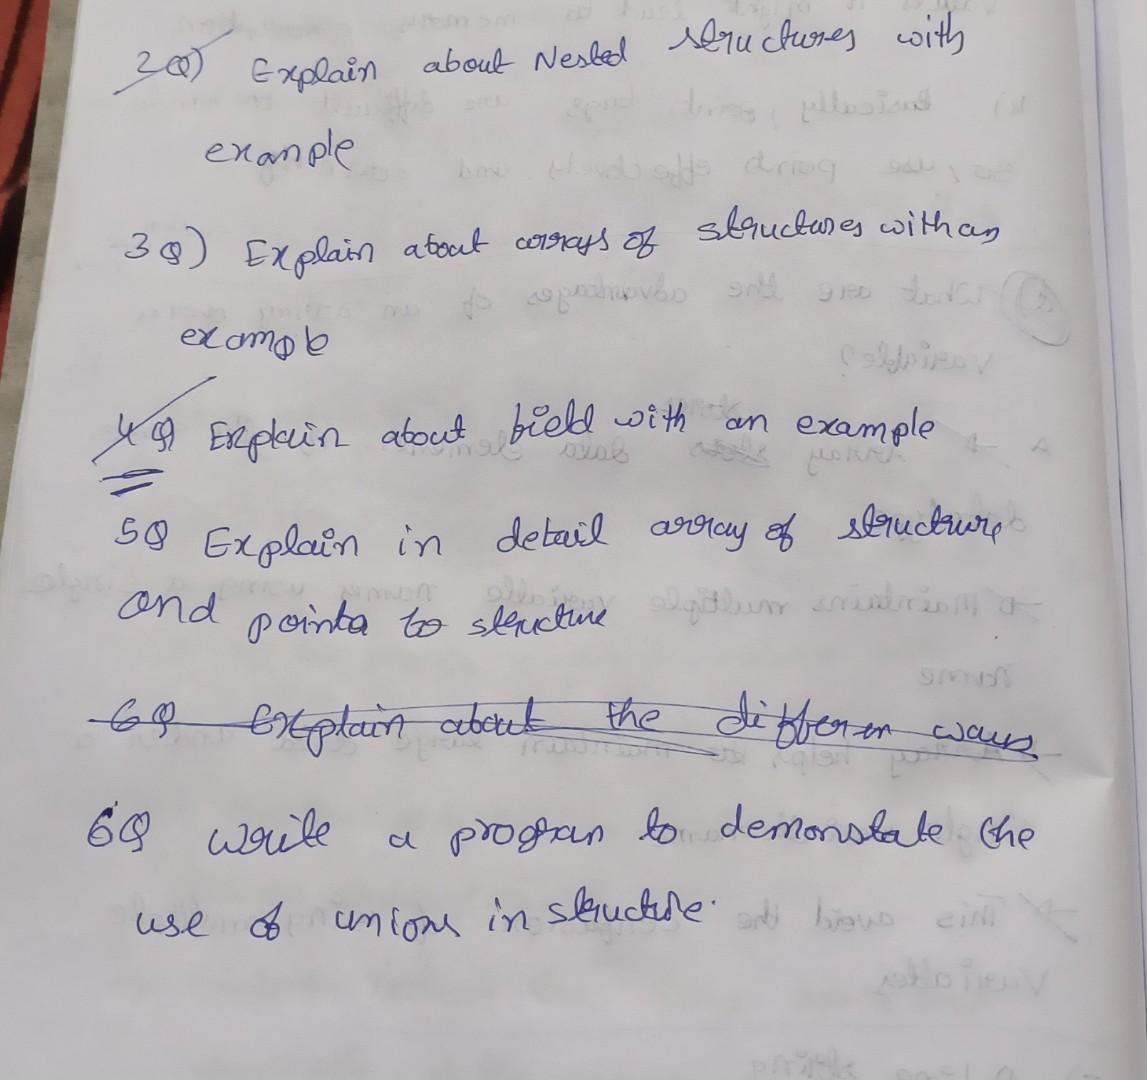 2Q) Explain about Nested structures with
example
3Q) Explain about arrays of structures with an
example
4Q) Explain about field with an example
5Q Explain in detail array of structure
and pointa to structure
6Q Explain about the differen ways
6Q write a program to demonstate the
use of unions in structure.